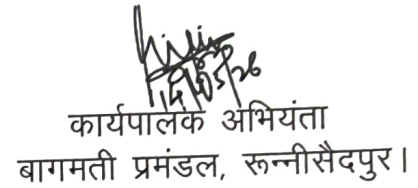 कार्यपालक अभियंता
बागमती प्रमंडल, रून्नीसैदपुर।